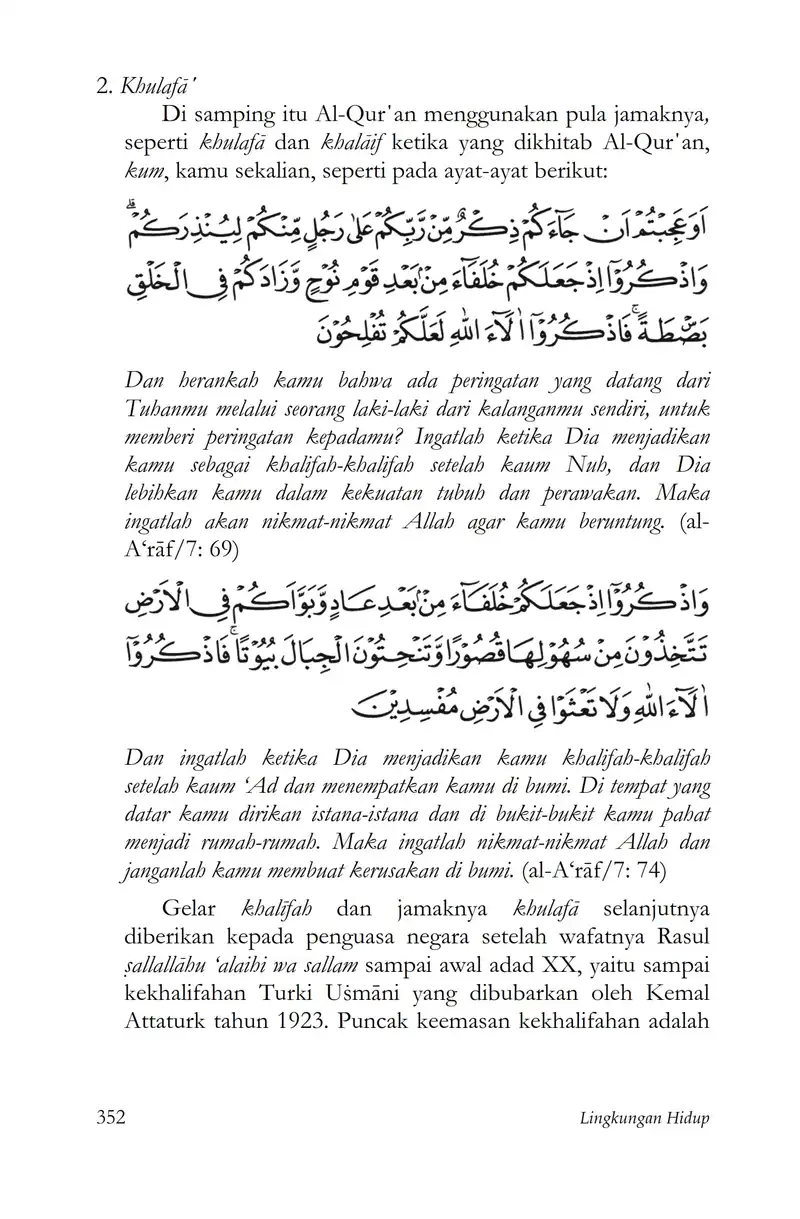 2. Khulafā'
Di samping itu Al-Qur'an menggunakan pula jamaknya,
seperti khulafā dan khalāif ketika yang dikhitab Al-Qur'an,
kum, kamu sekalian, seperti pada ayat-ayat berikut:
اَوَعَجِبْتُمْ اَنْ جَاۤءَكُمْ ذِكْرٌ مِّنْ رَّبِّكُمْ عَلٰى رَجُلٍ مِّنْكُمْ لِيُنْذِرَكُمْۗ
وَاذْكُرُوْٓا اِذْ جَعَلَكُمْ خُلَفَاۤءَ مِنْۢ بَعْدِ قَوْمِ نُوْحٍ وَّزَادَكُمْ فِى الْخَلْقِ
بَصْۣطَةً ۚفَاذْكُرُوْٓا اٰلَاۤءَ اللّٰهِ لَعَلَّكُمْ تُفْلِحُوْنَ
Dan herankah kamu bahwa ada peringatan yang datang dari
Tuhanmu melalui seorang laki-laki dari kalanganmu sendiri, untuk
memberi peringatan kepadamu? Ingatlah ketika Dia menjadikan
kamu sebagai khalifah-khalifah setelah kaum Nuh, dan Dia
lebihkan kamu dalam kekuatan tubuh dan perawakan. Maka
ingatlah akan nikmat-nikmat Allah agar kamu beruntung. (al-
A‘rāf/7: 69)
وَاذْكُرُوْٓا اِذْ جَعَلَكُمْ خُلَفَاۤءَ مِنْۢ بَعْدِ عَادٍ وَّبَوَّاَكُمْ فِى الْاَرْضِ
تَتَّخِذُوْنَ مِنْ سُهُوْلِهَا قُصُوْرًا وَّتَنْحِتُوْنَ الْجِبَالَ بُيُوْتًا ۚفَاذْكُرُوْٓا
اٰلَاۤءَ اللّٰهِ وَلَا تَعْثَوْا فِى الْاَرْضِ مُفْسِدِيْنَ
Dan ingatlah ketika Dia menjadikan kamu khalifah-khalifah
setelah kaum ‘Ad dan menempatkan kamu di bumi. Di tempat yang
datar kamu dirikan istana-istana dan di bukit-bukit kamu pahat
menjadi rumah-rumah. Maka ingatlah nikmat-nikmat Allah dan
janganlah kamu membuat kerusakan di bumi. (al-A‘rāf/7: 74)
Gelar khalīfah dan jamaknya khulafā selanjutnya
diberikan kepada penguasa negara setelah wafatnya Rasul
ṣallallāhu ‘alaihi wa sallam sampai awal adad XX, yaitu sampai
kekhalifahan Turki Uṡmāni yang dibubarkan oleh Kemal
Attaturk tahun 1923. Puncak keemasan kekhalifahan adalah
352
Lingkungan Hidup